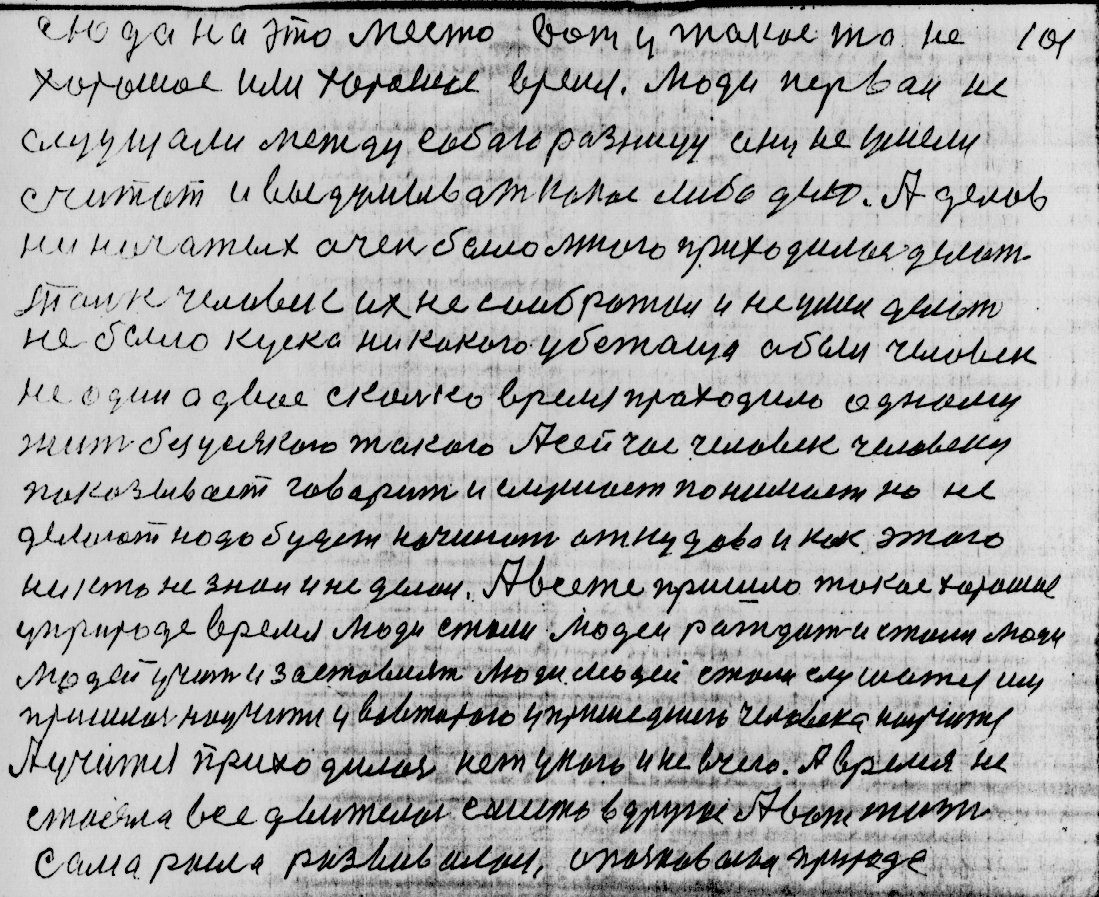 сюда на это место вот и такое то не 101
хорошое или хорошие время. Люди перваи не
слуушали между собаю разницу они не умели
считат и выдумыват какое либо дело. А делов
ни начатых очен было много приходилося делат
так человек их не соиbратал и не умел делат
не было куска никакого убежаща а был человек
не один а двое сколко время праходило одному
жит без усякого такого А сейчас человек человеку
показывает говарит и слушает понимает но не
делают надо будет начинат откудова и как этаго
никто не знал и не делал. А все же пришло такое хорошое
уприроде время люди стали людей раждат и стали люди
людей учит и заставлят люди людей стали слушатся им
пришлося научити у вовтораго упришедшего человека научитя
А учится приходилося нет укого и не вчего. А время не
стояла все двигалося с места вдругое А вот жит
сама рыла развивалася, а такова была природе